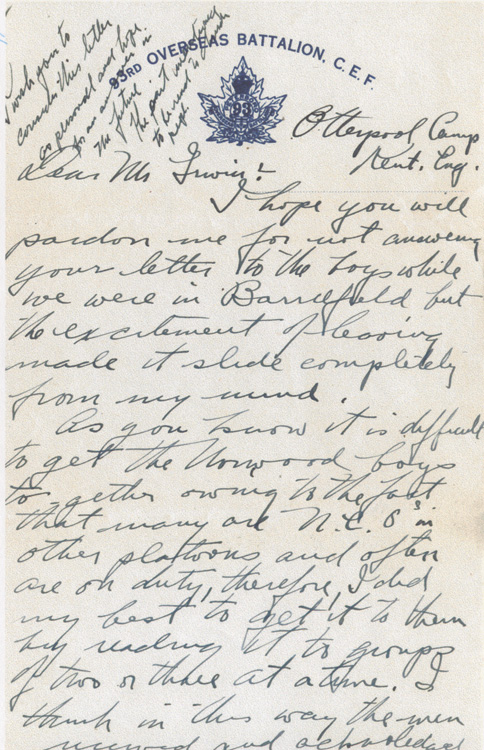 I wish you to
consider this letter
as personal and hope
for an answer in
the future
The part
to be read to
93RD OVERSEAS BATTALION, C.E.F.
93
Otterpool Camp
Kent. Eng.
Dear Mr Irwin:
I hope you will
pardon me for not answering
your letter to the boys while
we were in Barriefield but
the excitement of leaving
made it slide completely
from my mind.
As you know it is difficult
to get the Norwood boys
to-gether owing to the fact
that many are N.C.O's in
other platoons and often
are on duty, therefore, I did
my best to get it to them
by reading it to groups
of two or three at a time. I
think in this way the men
received and